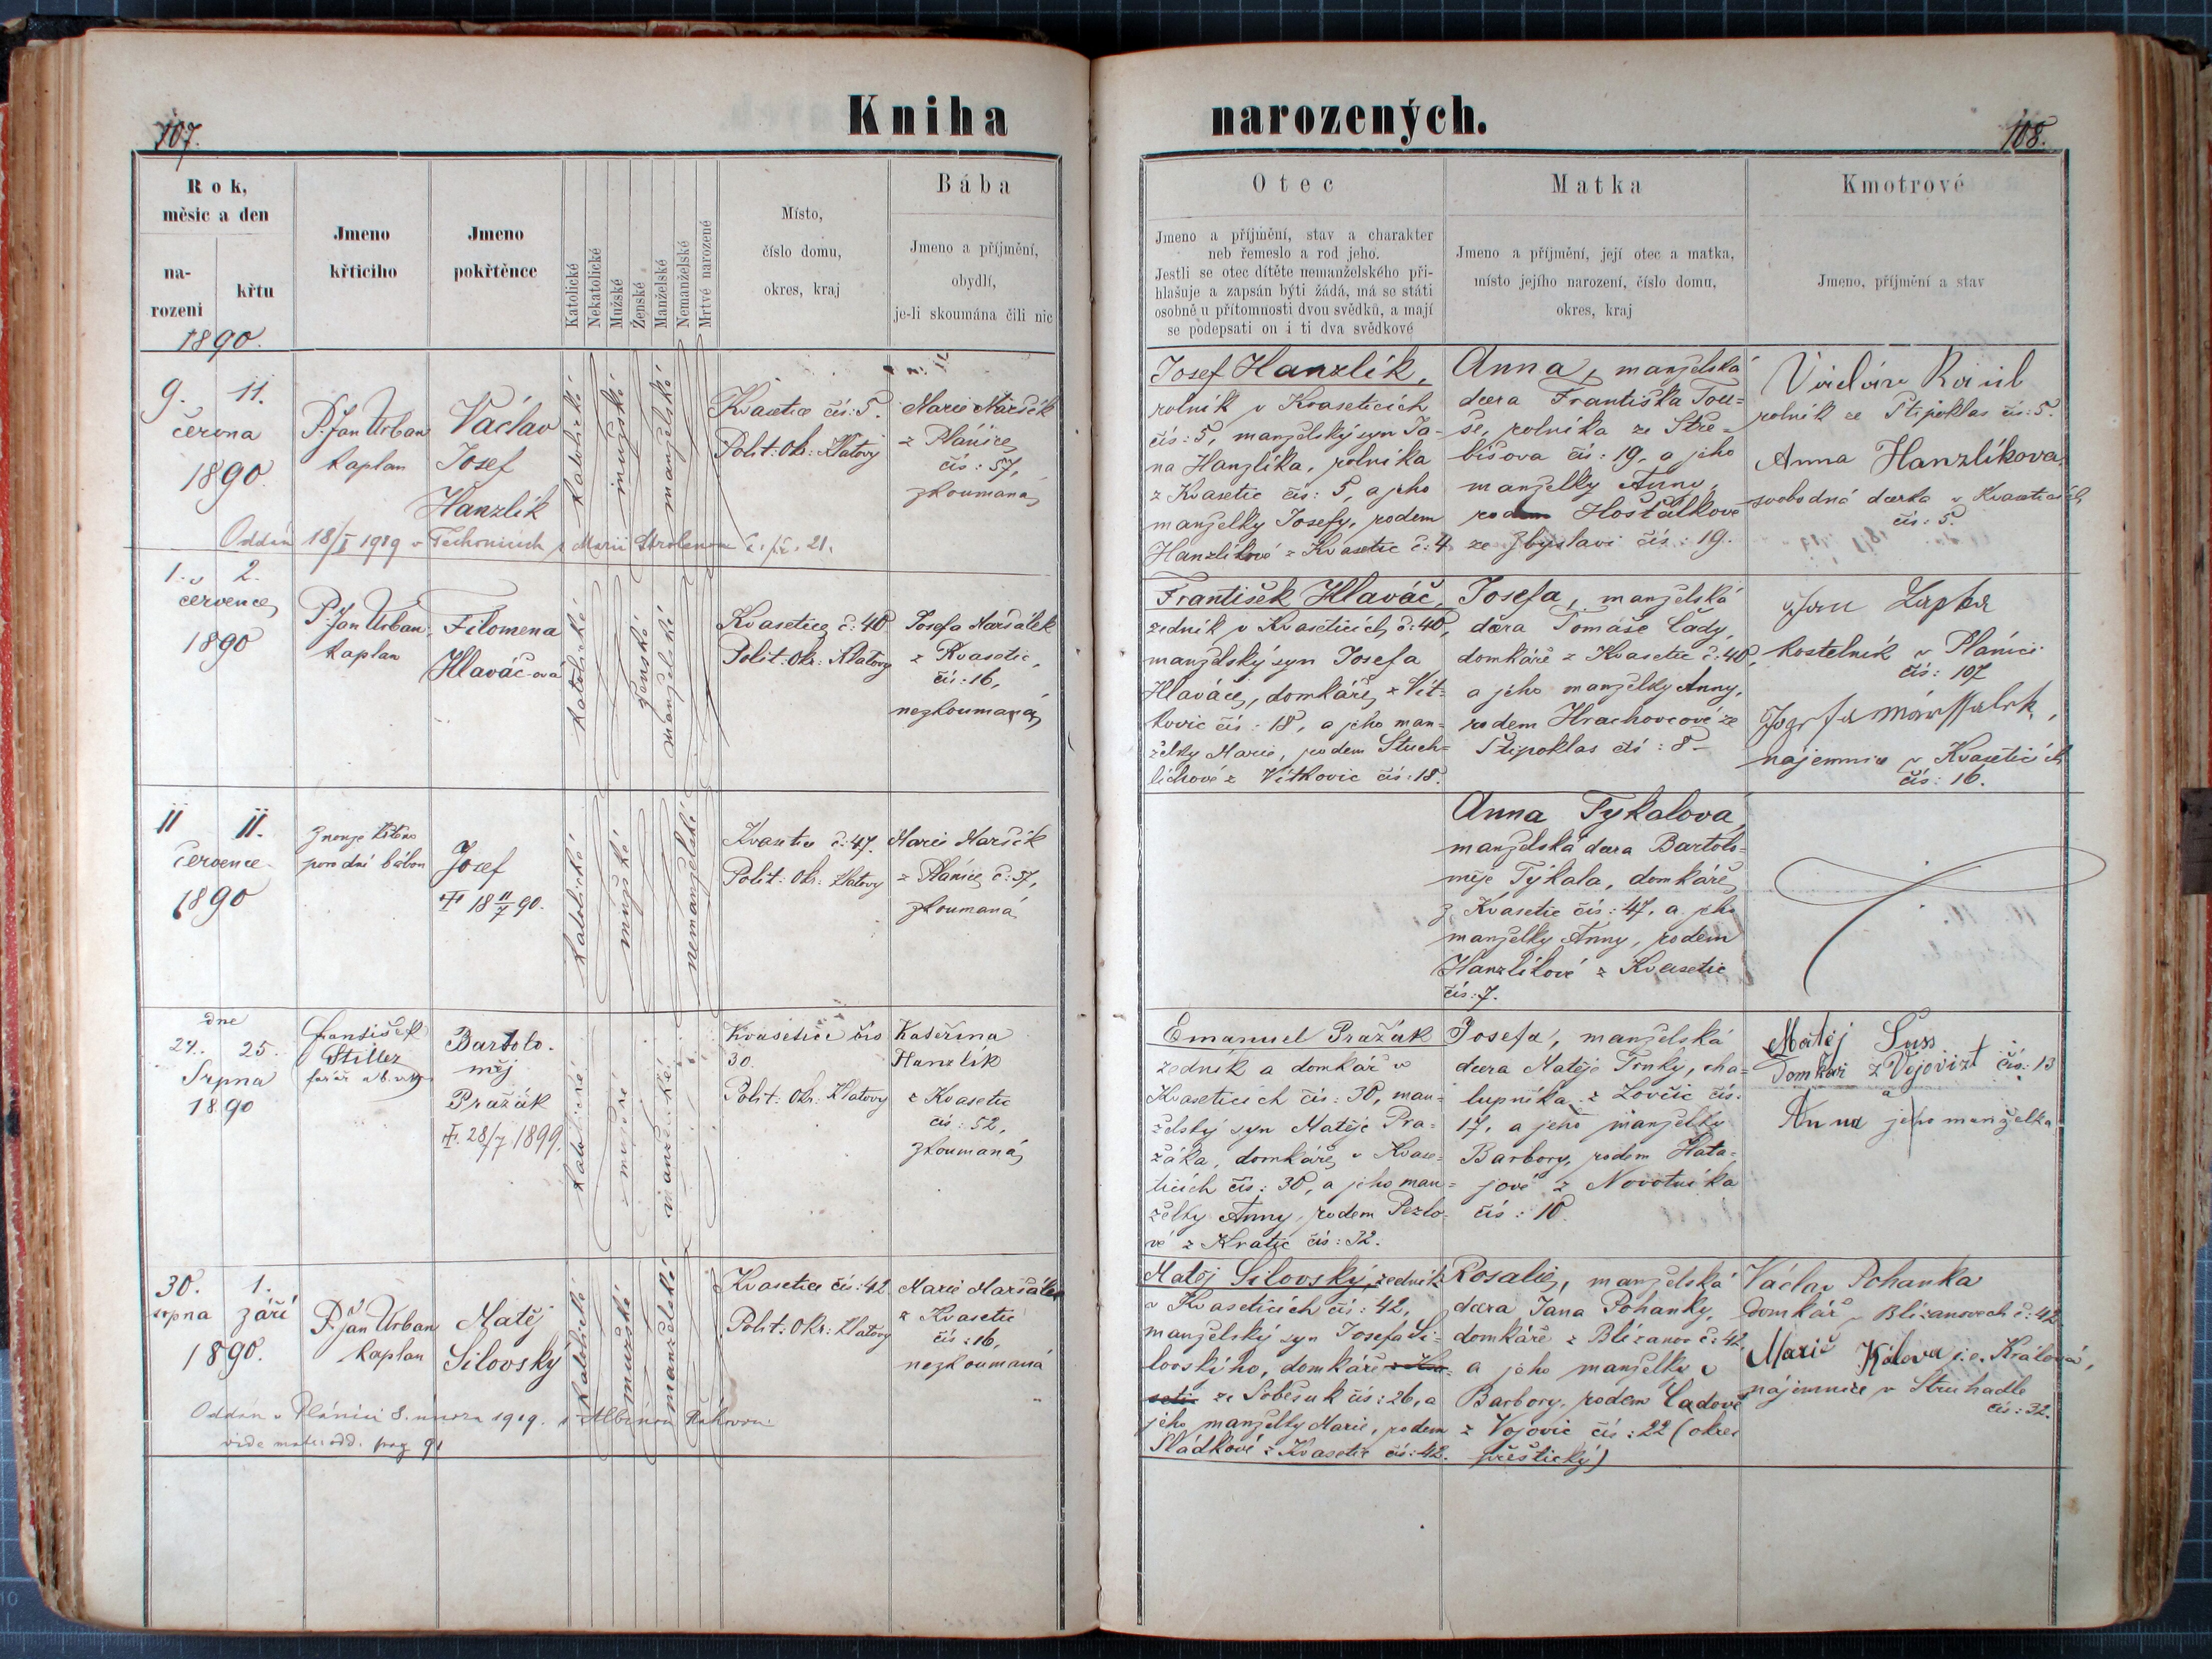 107.
Kniha
Rok,
měsíc a den
na-
rození
křtu
1890.
Jmeno
křticího
Jmeno
pokřtěnce
Katolické
Nekatolické
Mužské
Ženské
Manželské
Nemanželské
Mrtvě narozené
Místo,
číslo domu,
okres, kraj
Bába
Jmeno a příjmění,
obydlí,
je-li skoumána čili nic
9. 11.
června
1890
P. Jan Urban
kaplan
Václav
Josef
Hanzlík
katolické
mužské
manželské
Kvasetice čís: 5.
Polit: Okr: Klatovy
Marie Maršík
z Plánice
čís: 57,
zkoumaná
Oddán 18/I 1919 v Těchonicích s Marií
1. 2.
července
1890
P. Jan Urban
kaplan
Filomena
Hlaváč-ová
katolické
ženské
manželské
Kvasetice č: 40
Polit: Okr: Klatovy
Josefa Maršálek
z Kvasetic,
čís: 16,
nezkoumaná
11 11.
července
1890
porodní bábou
Josef
18 11/7 90.
katolické
mužské
nemanželské
Kvasetice č: 47.
Polit: Okr: Klatovy
Marie Maršík
z Plánice č: 57,
zkoumaná
dne
24. 25.
Srpna
1890
František
Stiller
farář
Bartolo-
měj
Pražák
28/7 1899.
katolické
mužské
manželské
Kvasetice čís
30.
Polit: Okr: Klatovy
Kateřina
Hanzlík
z Kvasetic
čís: 52,
zkoumaná
30. 1.
srpna září
1890.
P. Jan Urban
kaplan
Matěj
Silovský
katolické
mužské
manželské
Kvasetice čís: 42
Polit: Okr: Klatovy
Marie Maršálek
z Kvasetic
čís: 16,
nezkoumaná
Oddán v Plánici 8. února 1919. s Albínou
vide matr: odd. pag 91
narozených.
108.
Otec
Jmeno a příjmění, stav a charakter
neb řemeslo a rod jeho.
Jestli se otec dítěte nemanželského při-
hlašuje a zapsán býti žádá, má se státi
osobně u přítomnosti dvou svědků, a mají
se podepsati on i ti dva svědkové
Matka
Jmeno a příjmění, její otec a matka,
místo jejího narození, číslo domu,
okres, kraj
Kmotrové
Jmeno, příjmění a stav
Josef Hanzlík,
rolník v Kvaseticích
čís: 5, manželský syn Ja-
na Hanzlíka, rolníka
z Kvasetic čís: 5, a jeho
manželky Josefy, rodem
Hanzlíkové z Kvasetic č: 4
Anna, manželská
dcera Františka Tou-
še, rolníka ze Stře-
bišova čís: 19, a jeho
manželky Anny,
rodem Hošťálkové
ze Zbyslavi čís: 19.
Václav
rolník ze Štipoklas čís: 5.
Anna Hanzlíkova
svobodná dcerka v Kvaseticích
čís: 5.
František Hlaváč,
zedník v Kvaseticích č: 40,
manželský syn Josefa
Hlaváče, domkáře z Vít-
kovic čís: 18, a jeho man-
želky Marie, rodem Stuch-
líchové z Vítkovic čís: 18.
Josefa, manželská
dcera Tomáše Čady,
domkáře z Kvasetic č: 40,
a jeho manželky Anny,
rodem Hrachovcové ze
Štipoklas čís: 8
Jan
kostelník v Plánici
čís: 107
nájemnice v Kvaseticích
čís: 16.
Anna Tykalova
manželská dcera Bartolo-
měje Týkala, domkáře
z Kvasetic čís: 47, a jeho
manželky Anny, rodem
Hanzlíkové z Kvasetic
čís: 7.
Emanuel Pražák
zedník a domkář v
Kvaseticích čís: 30, man-
želský syn Matěje Pra-
žáka, domkáře v Kvase-
ticích čís: 30, a jeho man-
želky Anny, rodem Pezlo-
vé z Kratic čís: 32.
Josefa, manželská
dcera Matěje Trnky, cha-
lupníka z Lovčic čís:
17, a jeho manželky
Barbory, rodem Hata-
jové z Novotníka
čís: 10.
Matěj Suss
Domkář z čís: 13
a
Anna jeho manželka
Matěj Silovský, zedník
v Kvaseticích čís: 42,
manželský syn Josefa Si-
lovského, domkáře
ze Soběsuk čís: 26, a
jeho manželky Marie, rodem
Sládkové z Kvasetic čís: 42.
Rosalie, manželská
dcera Jana Pohanky,
domkáře z Blížanov č: 42,
a jeho manželky
Barbory, rodem Čadové
z Vojovic čís: 22 (okres
přeštický)
Václav Pohanka
Domkář v Blížanovech č: 42
Marie Kálova i.e. Králová,
nájemnice v Struhadle
čís: 32.